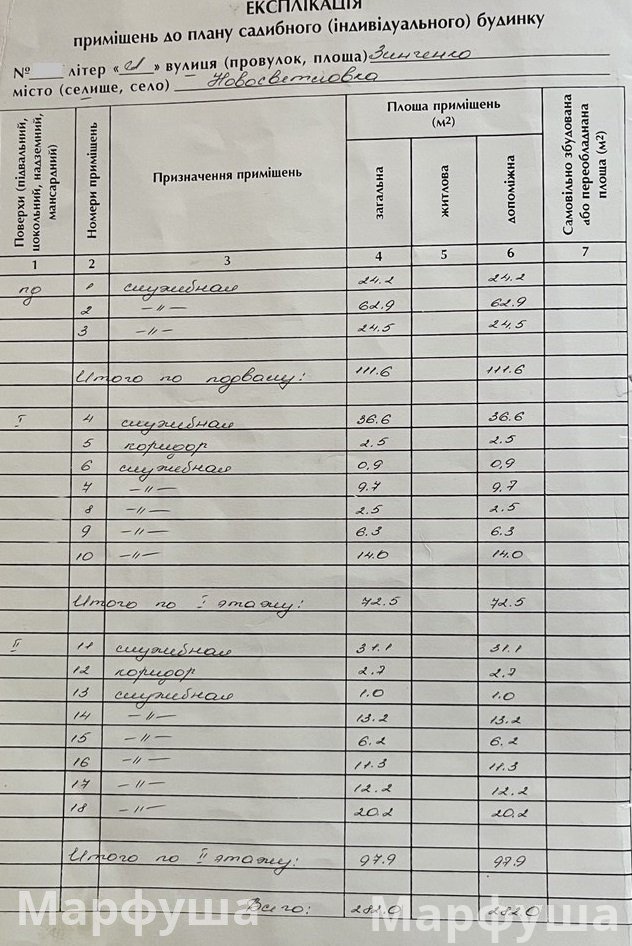 ЕКСПЛІКАЦІЯ
приміщень до плану садибного (індивідуального) будинку
№ літер « И » вулиця (провулок, площа) Зинченко
місто (селище, село) Новосветловка
Поверхи (підвальний, цокольний, надземний, мансардний) Номери приміщень Призначення приміщень Площа приміщень (м2) загальна житлова допоміжна Самовільно збудована або переобладнана площа (м2)
1 2 3 4 5 6 7
пд 1 служебная 24.2 24.2
2 —〃— 62.9 62.9
3 —〃— 24.5 24.5
Итого по подвалу: 111.6 111.6
I 4 служебная 36.6 36.6
5 коридор 2.5 2.5
6 служебная 0,9 0,9
7 —〃— 9.7 9.7
8 —〃— 2.5 2.5
9 —〃— 6.3 6.3
10 —〃— 14.0 14.0
Итого по I этажу: 72.5 72.5
II 11 служебная 31.1 31.1
12 коридор 2.7 2.7
13 служебная 1.0 1.0
14 —〃— 13.2 13.2
15 —〃— 6.2 6.2
16 —〃— 11.3 11.3
17 —〃— 12.2 12.2
18 —〃— 20.2 20.2
Итого по II этажу: 97.9 97.9
Всего: 282.0 282.0
Марфуша Марфуша